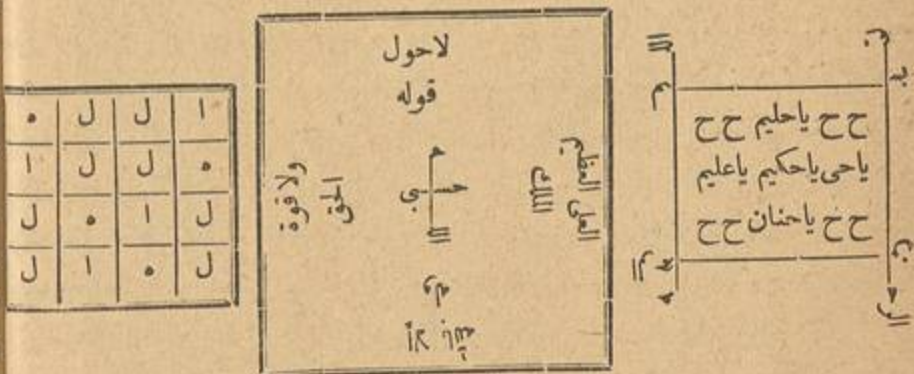 ح ح ياحليم ح ح
ياحى ياحكيم ياعليم
ح ح ياحنان ح ح
لاحول
قوله
العلى العظيم
حسبى
الحق
ولا قوة
الا بالله
ا ل ل ه
ه ل ل ا
ل ا ه ل
ل ه ا ل